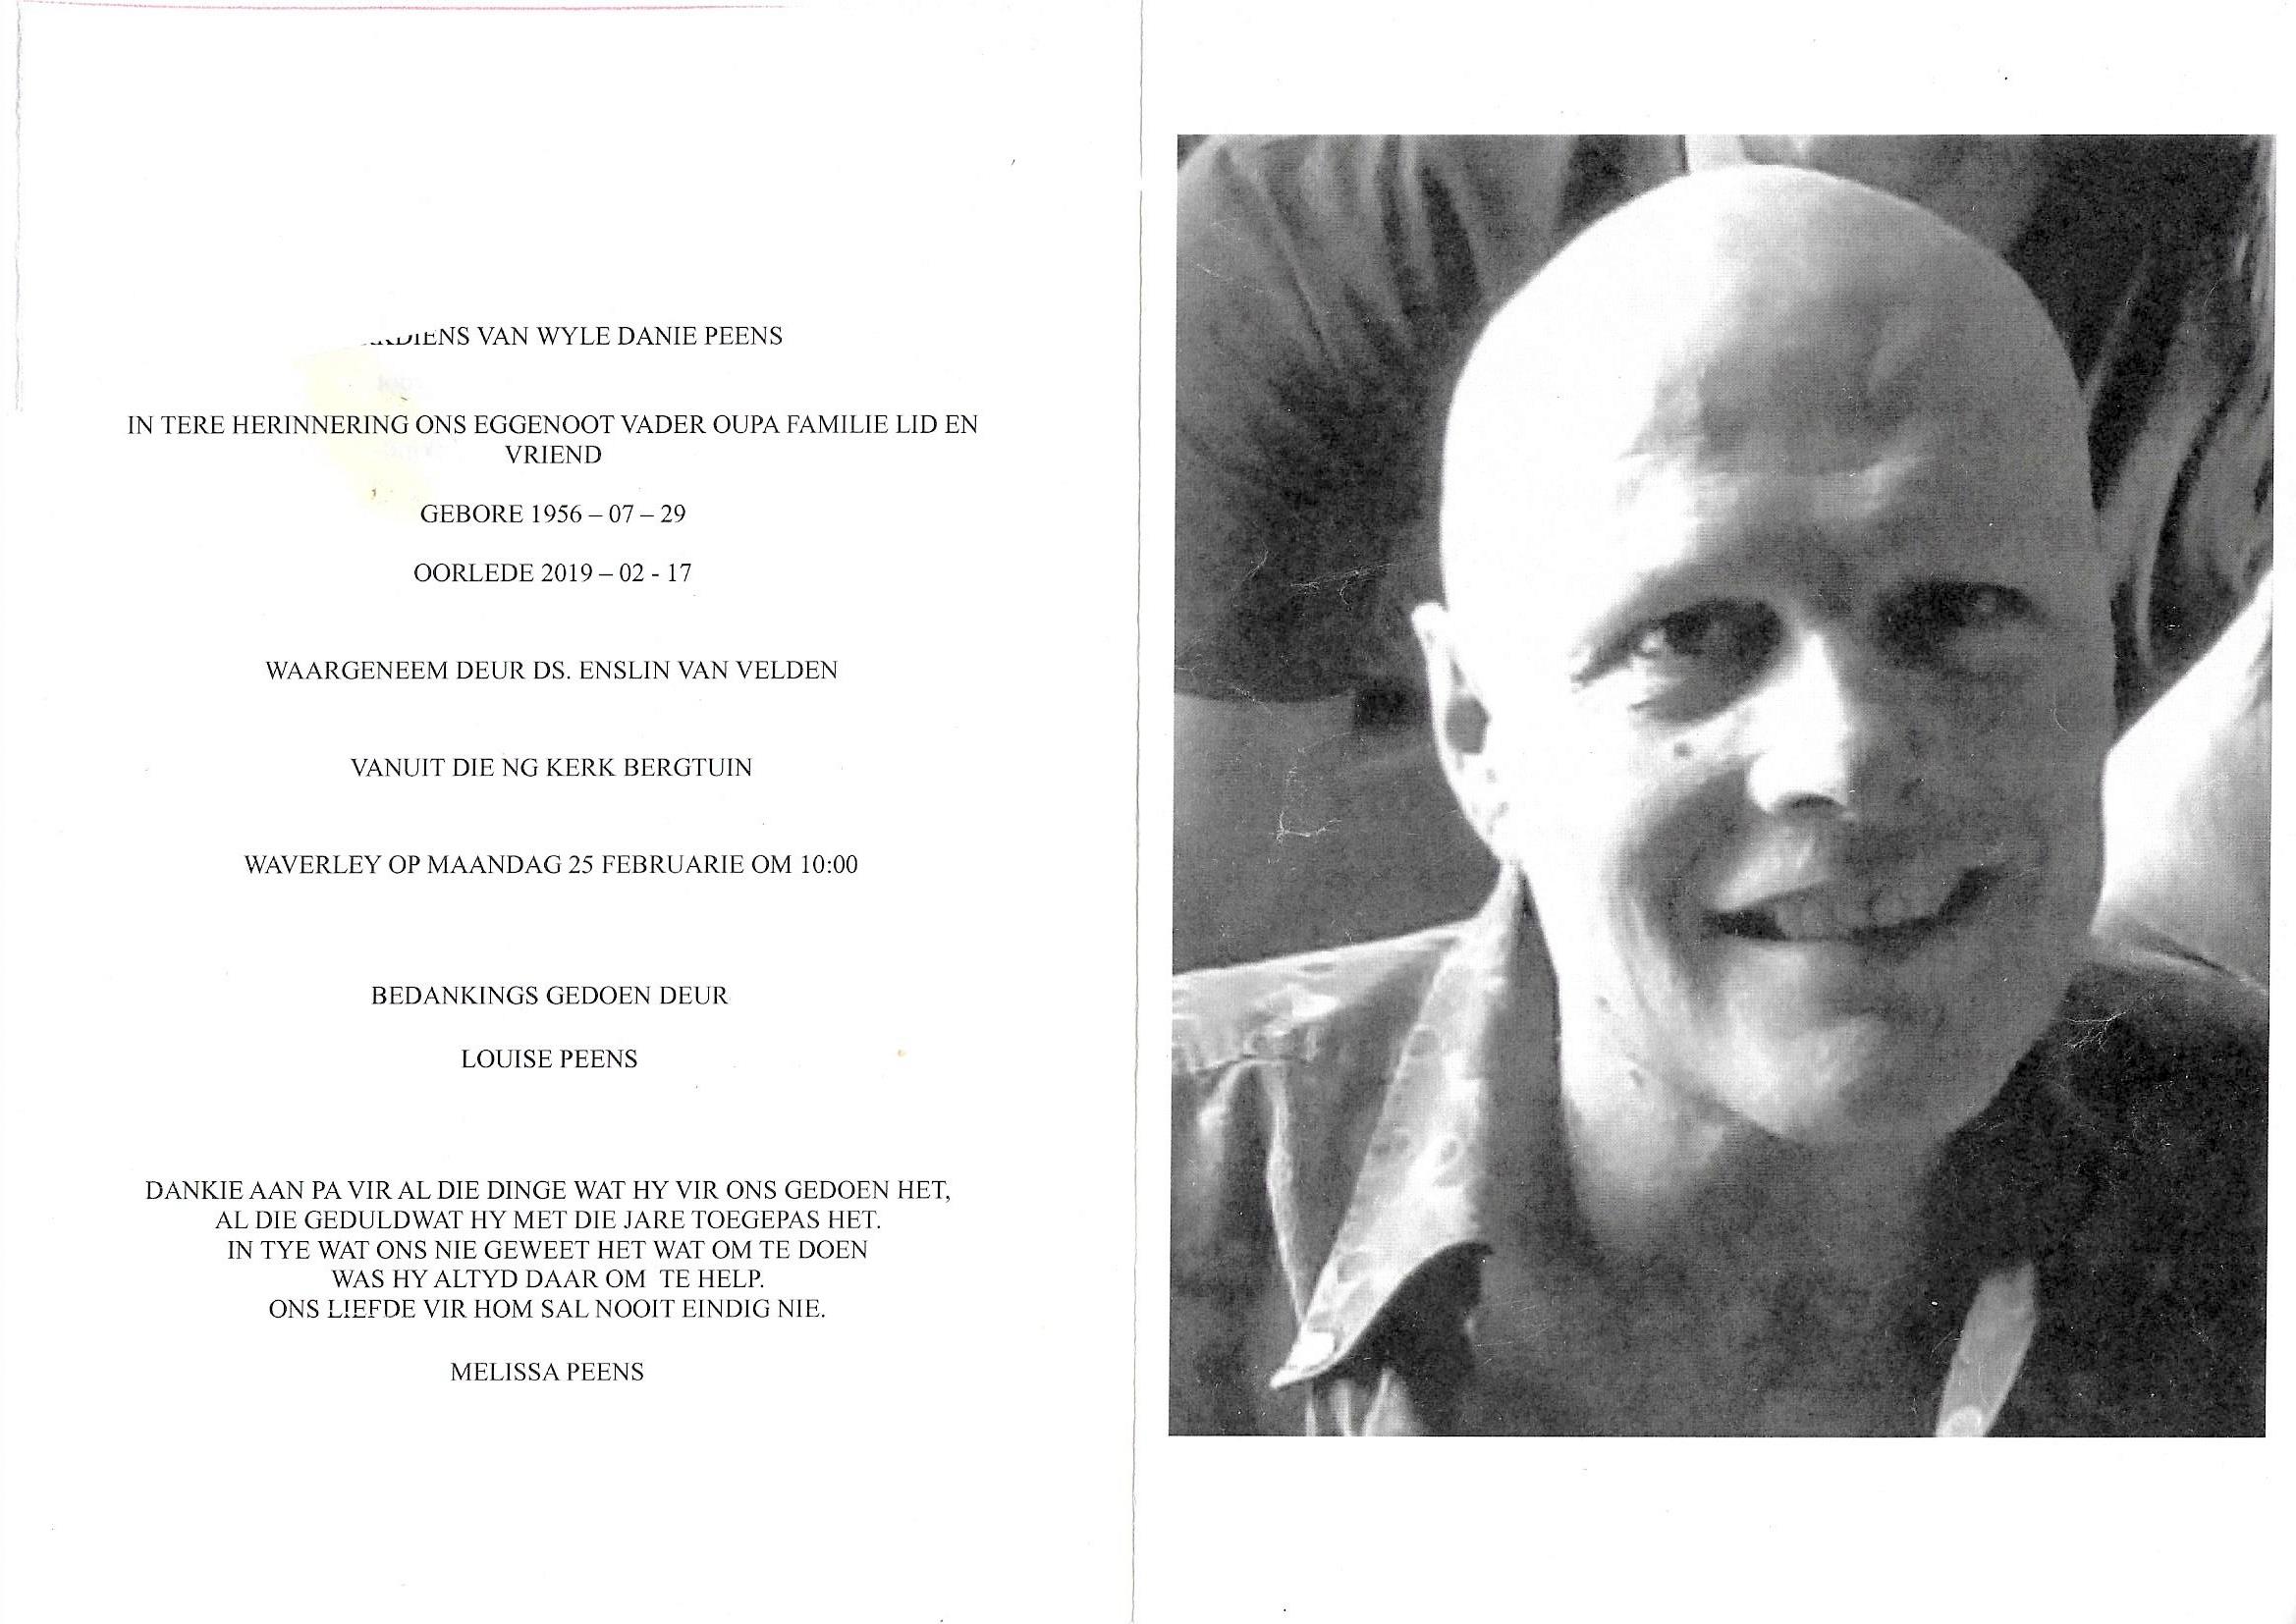 VAN WYLE DANIE PEENS
IN TERE HERINNERING ONS EGGENOOT VADER OUPA FAMILIE LID EN
VRIEND
GEBORE 1956 – 07 – 29
OORLEDE 2019 – 02 - 17
WAARGENEEM DEUR DS. ENSLIN VAN VELDEN
VANUIT DIE NG KERK BERGTUIN
WAVERLEY OP MAANDAG 25 FEBRUARIE OM 10:00
BEDANKINGS GEDOEN DEUR
LOUISE PEENS
DANKIE AAN PA VIR AL DIE DINGE WAT HY VIR ONS GEDOEN HET,
AL DIE GEDULDWAT HY MET DIE JARE TOEGEPAS HET.
IN TYE WAT ONS NIE GEWEET HET WAT OM TE DOEN
WAS HY ALTYD DAAR OM TE HELP.
ONS LIEFDE VIR HOM SAL NOOIT EINDIG NIE.
MELISSA PEENS